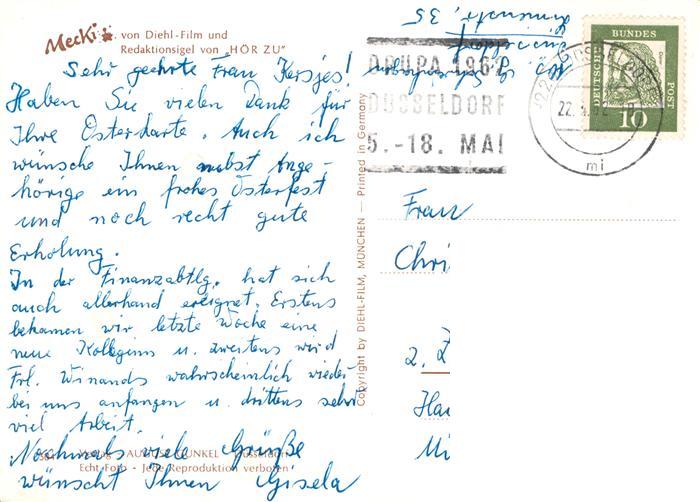 Mecki .. von Diehl-Film und
Redaktionsigel von "HÖR ZU"
Sehr geehrte Frau Kersjes!
Haben Sie vielen Dank für
Ihre Osterkarte. Auch ich
wünsche Ihnen nebst Ange-
hörige ein frohes Osterfest
und noch recht gute
Erholung.
In der Finanzabtlg. hat sich
auch allerhand ereignet. Erstens
bekamen wir letzte Woche eine
neue Kollegin u. zweitens wird
Frl. Winands wahrscheinlich wieder
bei uns anfangen u. drittens sehr
viel Arbeit.
Nochmals viele Grüße
wünscht Ihnen Gisela
Verlag AUGUST GUNKEL Düsseldorf
Echt Foto - Jede Reproduktion verboten
Copyright by DIEHL-FILM, MÜNCHEN — Printed in Germany
DRUPA 1962
DÜSSELDORF
5.-18. MAI
DÜSSELDORF
22.4.62
mi
DEUTSCHE BUNDESPOST
10
Frau
Chri
2.
Hau
Mi